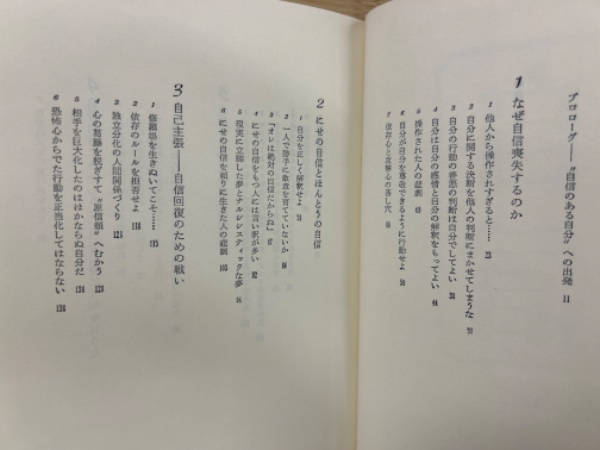 プロローグ――〝自信のある自分〟への出発 11
1 なぜ自信喪失するのか
1 他人から操作されすぎると…… 23
2 自分に関する決断を他人の判断にまかせてしまうな
3 自分の行動の善悪の判断は自分でしてよい
4 自分は自分の感情と自分の解釈をもってよい
5 操作された人の悲劇
6 自分が自分を尊敬できるように行動せよ
7 依存心と攻撃心の落し穴
2 にせの自信とほんとうの自信
1 自分を正しく解釈せよ
2 一人で勝手に敵意を育てていないか
3 「オレは絶対の自信だからね」
4 にせの自信をもつ人には言い訳が多い
5 現実に立脚した夢とナルシシスティックな夢
6 にせの自信を頼りに生きた人の悲劇
3 自己主張――自信回復のための戦い
1 修羅場を生きぬいてこそ…… 115
2 依存のルールを拒否せよ 118
3 独立分化の人間関係づくり 125
4 心の葛藤を脱ぎすて〝原信頼〟へむかう
5 相手を巨大化したのはほかならぬ自分だ
6 恐怖心からでた行動を正当化してはならない